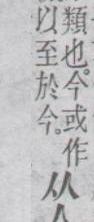 類也。今或作从
以至於今。